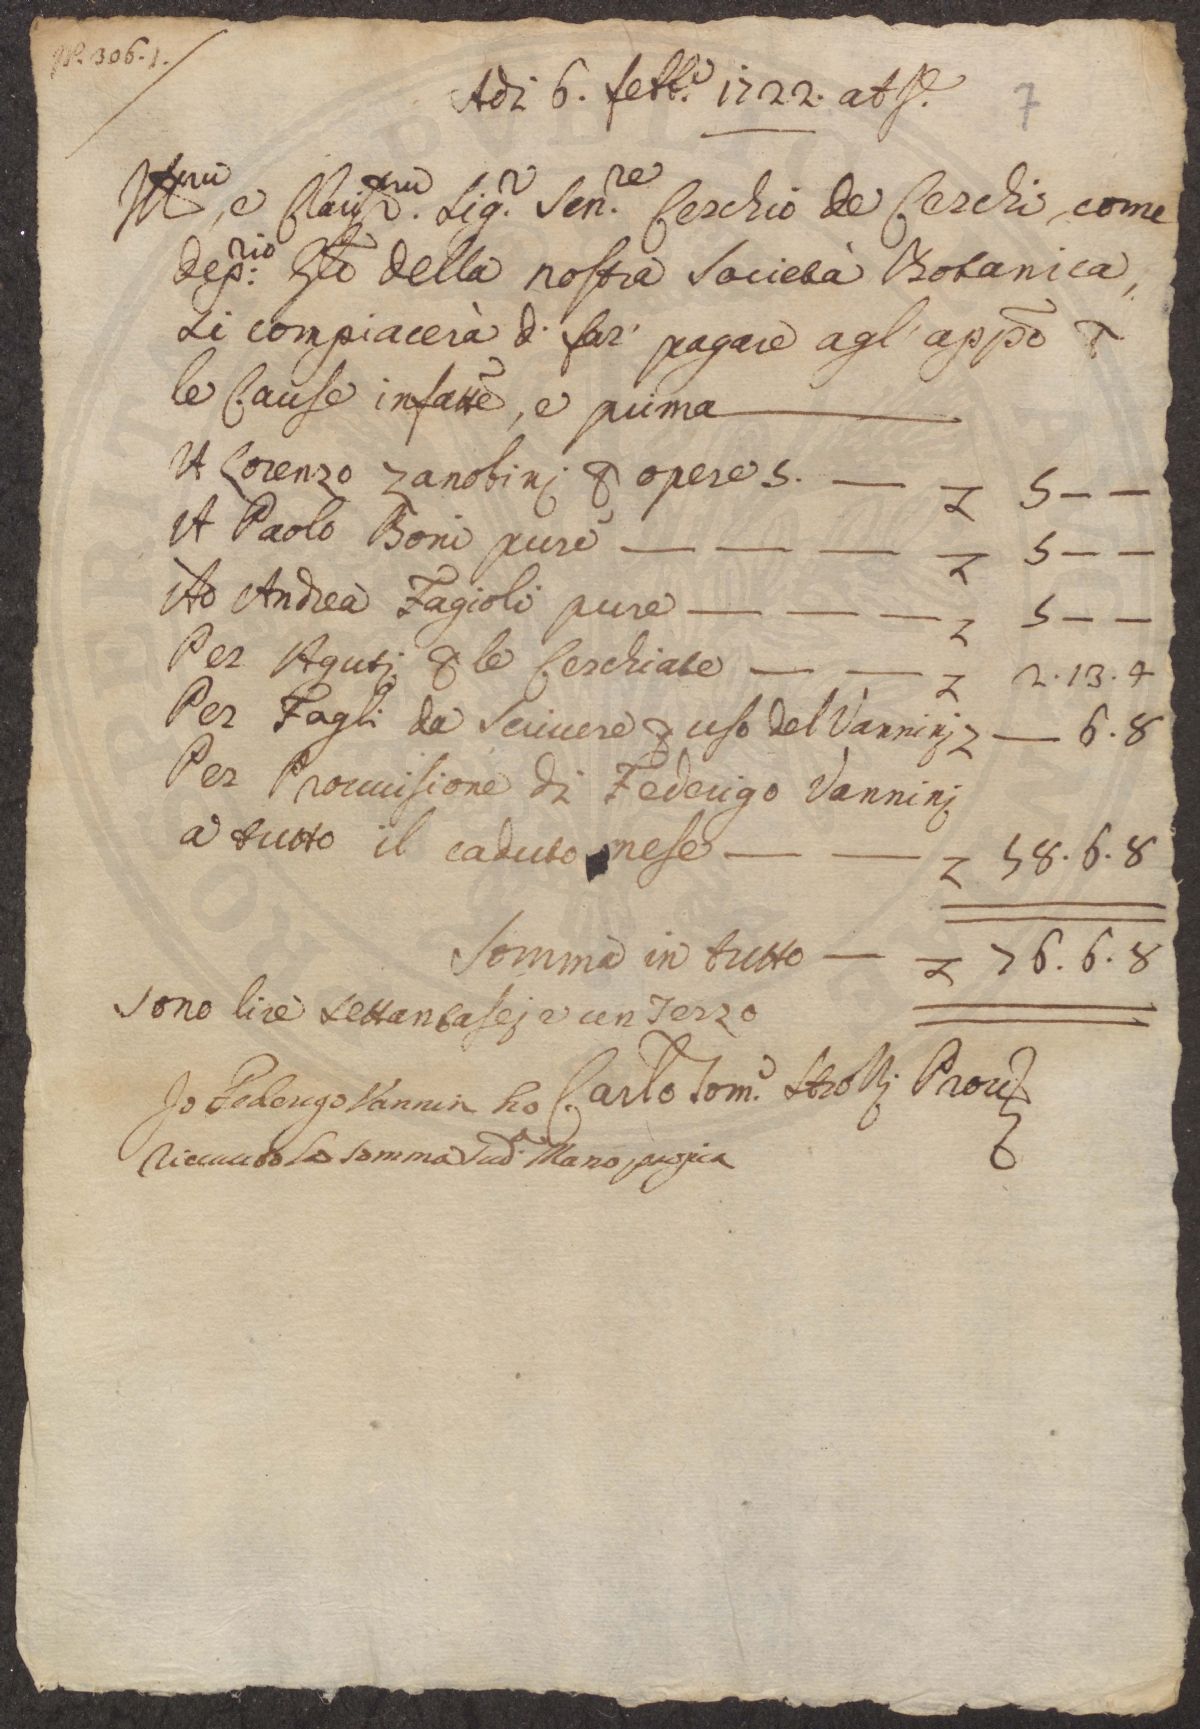 GP. 306.1.
Adi 6. febb.º 1722. ab Inc.e
7
Ill.mo, e Clariss.mo Sig.r Sen.re Cerchio de Cerchi, come
dep.rio della nostra Società Botanica,
si compiacerà di far' pagare agl' app.o p
le Cause infatte, e prima
A Lorenzo Zanobinj p opere 5. — — £ 5 — —
A Paolo Boni pure — — — — £ 5 — —
Ad Andrea Fagioli pure — — — £ 5 — —
Per Agutj p le Cerchiate — — £ 2.13.4
Per Fogli da scrivere p uso del Vanninj £ — 6.8
Per Provvisione di Federigo Vanninj
a tutto il caduto mese — — £ 58.6.8
Somma in tutto — £ 76.6.8
Sono lire settantasej e un Terzo
Carlo Tom.º Strozzj Prov.
Io Federigo Vannini ho
riceuuto la somma sud.a Mano propria